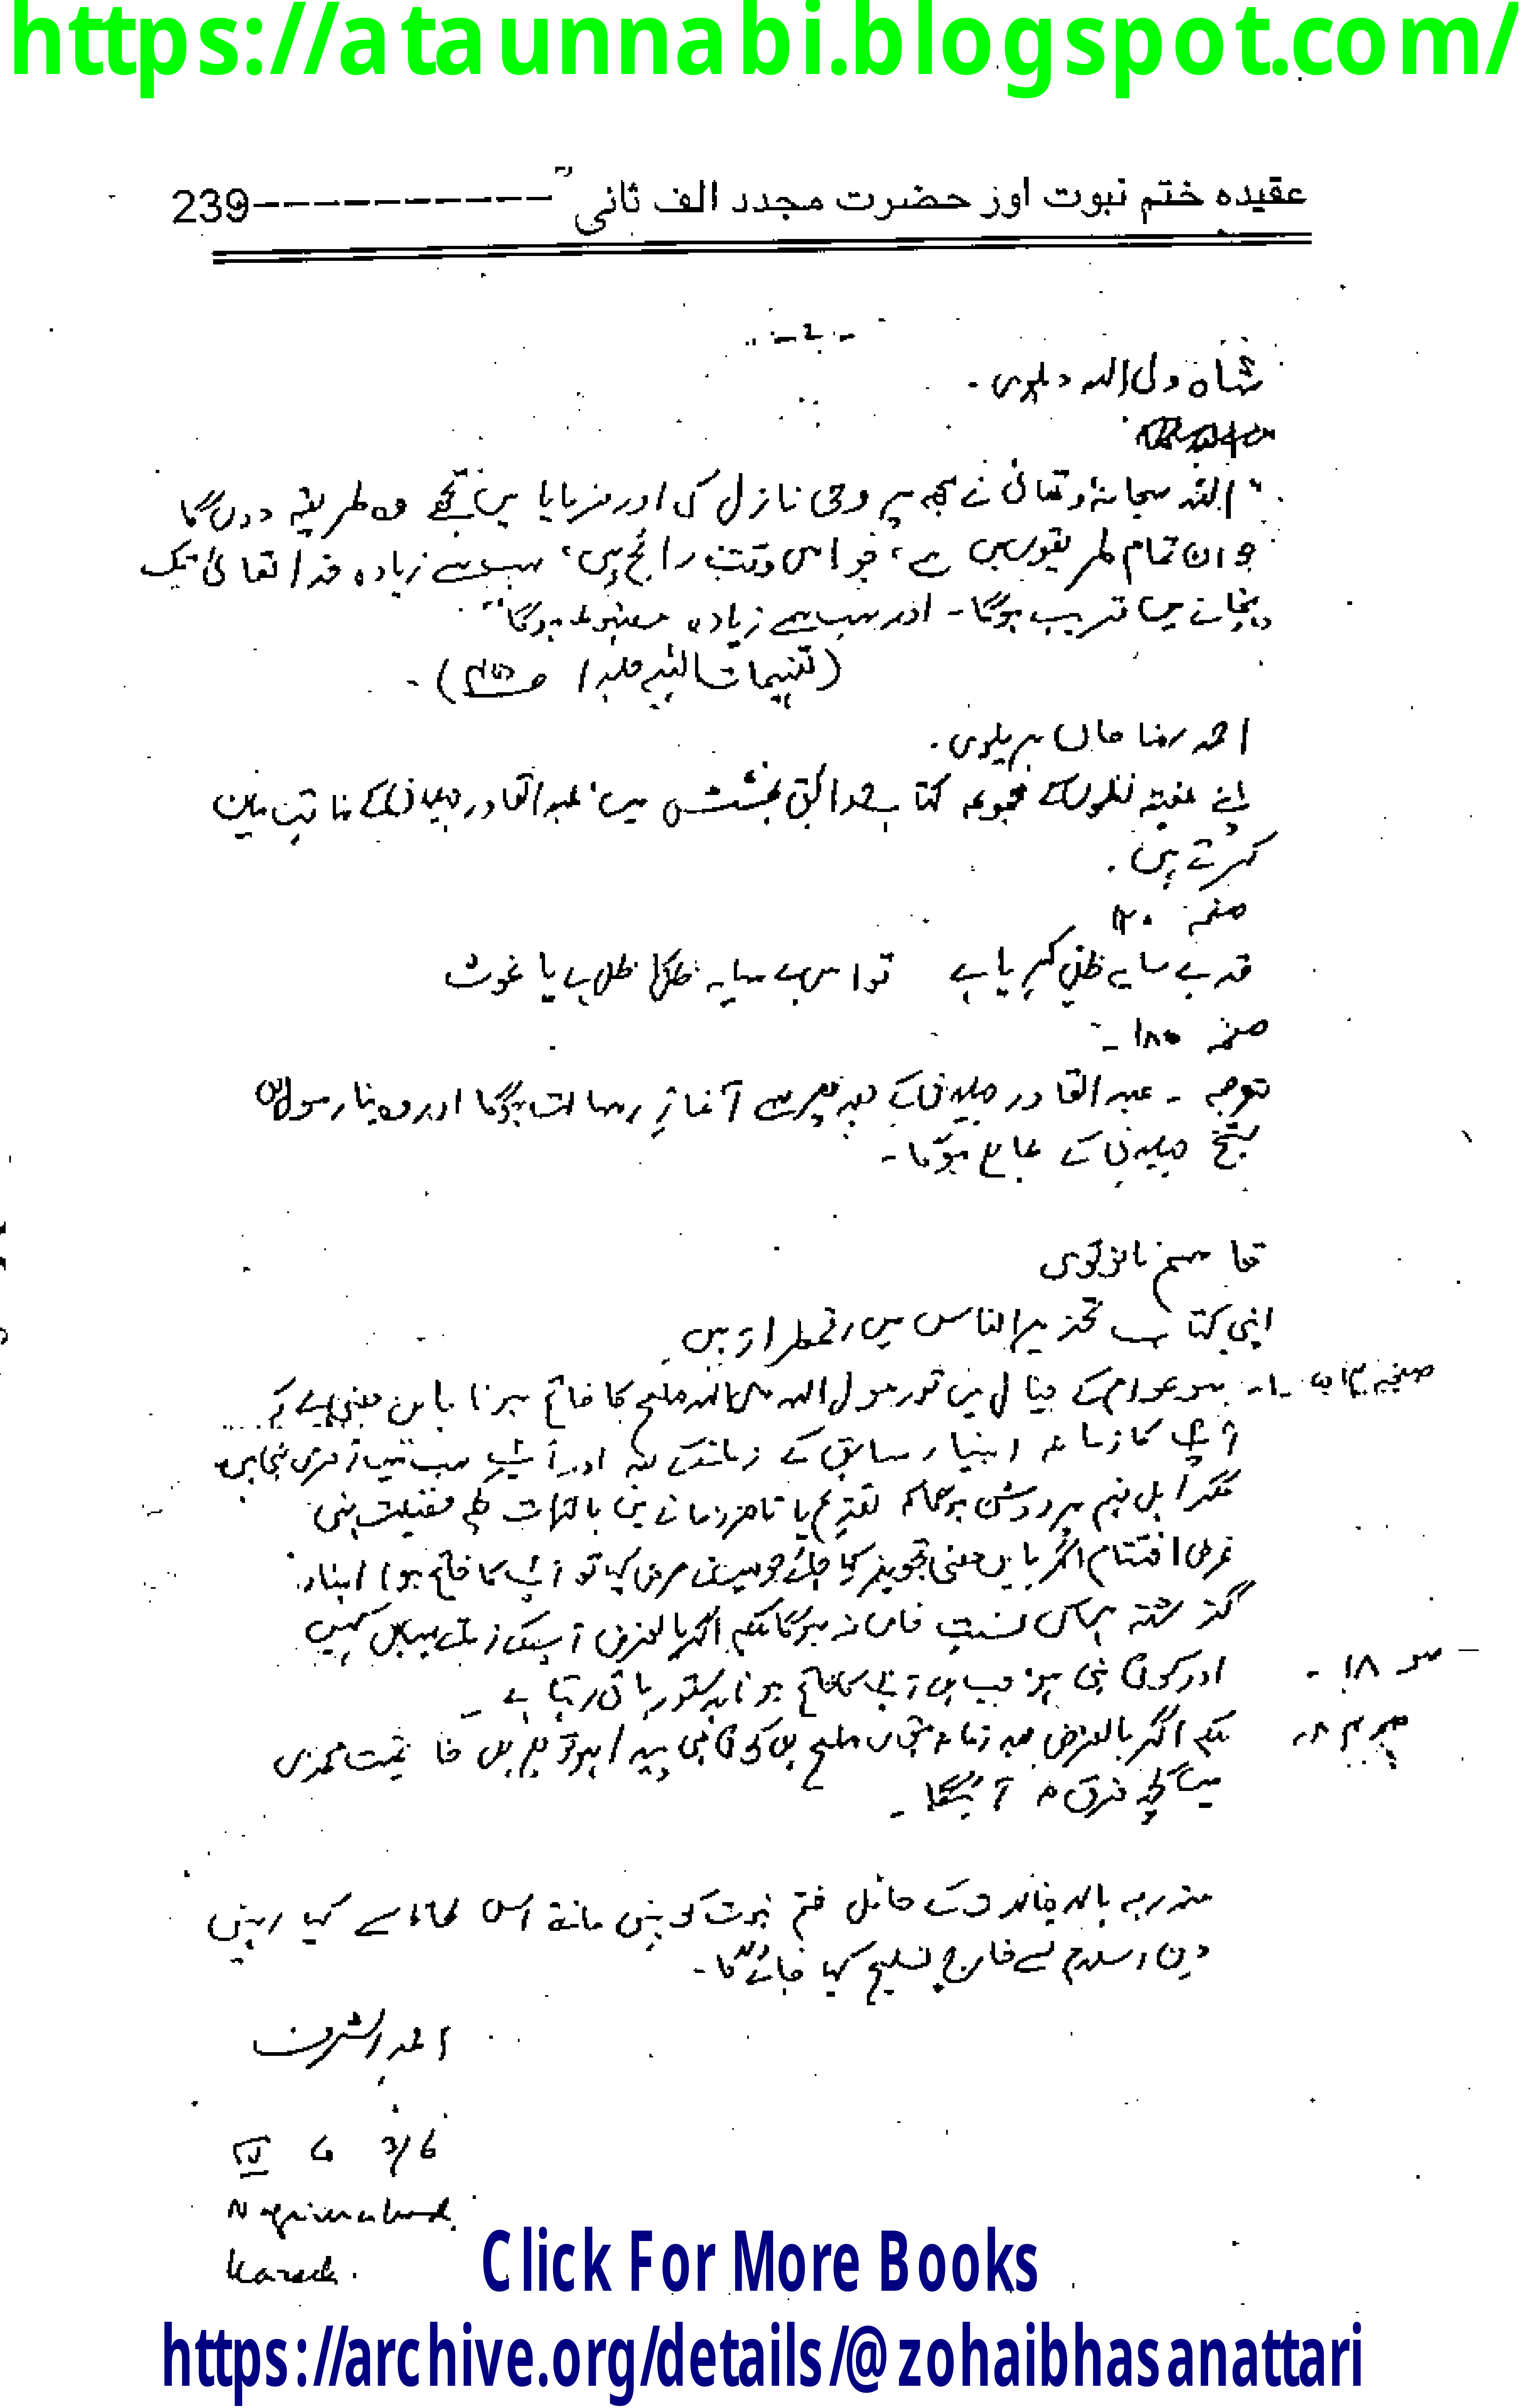 https://ataunnabi.blogspot.com/
عقیدہ ختم نبوت اور حضرت مجدد الف ثانیؒ ------------239
-۲-
شاہ ولی اللہ دہلوی۔
"اللہ سبحانہٗ و تعالیٰ نے مجھ پر وحی نازل کی اور فرمایا میں تجھے وہ طریقہ دوں گا
جو ان تمام طریقوں میں سے، جو اس وقت رائج ہیں، سب سے زیادہ خدا تعالیٰ تک
پہنچانے میں قریب ہوگا۔ اور سب سے زیادہ مضبوط ہوگا"
(تفہیمات الٰہیہ جلد ۱
احمد رضا خاں بریلوی۔
اپنے نعتیہ نظموں کے مجموعہ کتاب حدائق بخشش میں، عبدالقادر جیلانی کے مناقب بیان
کرتے ہیں۔
صفحہ ۱۲۰
تو اس بے سایہ ظل کا ظل ہے یا غوث
صفحہ ۱۸۰ -
توجہ - عبد القادر جیلانی کے بعد پھر سے آغازِ رسالت ہوگا اور وہ نیا رسول
شیخ جیلانی کے تابع ہوگا۔
قاسم نانوتوی
اپنی کتاب تحذیر الناس میں رقمطراز ہیں
صفحہ -۱- سو عوام کے خیال میں تو رسول اللہ صلی اللہ صلعم کا خاتم ہونا بایں معنی ہے کہ
آپ کا زمانہ انبیاء سابق کے زمانے کے بعد اور آپ سب میں آخری نبی ہیں
مگر اہل فہم پر روشن ہوگا کہ تقدم یا تاخر زمانے میں بالذات کچھ فضیلت نہیں
غرض اختتام اگر بایں معنی تجویز کیا جائے جو میں نے عرض کیا تو آپ کا خاتم ہونا انبیاء
گذشتہ ہی کی نسبت خاص نہ ہوگا بلکہ اگر بالفرض آپ کے زمانے میں بھی کہیں
صـ ۱۸ - اور کوئی نبی ہو، جب بھی آپ کا خاتم ہونا بدستور باقی رہتا ہے۔
بلکہ اگر بالفرض بعد زمانہ نبوی صلعم بھی کوئی نبی پیدا ہو تو پھر بھی خاتمیت محمدی
میں کچھ فرق نہ آئیگا۔
مندرجہ بالا قائل ختم نبوت کو نہیں مانتے اس لحاظ سے کیا انہیں
دین اسلام سے خارج تسلیم کیا جائے گا۔
Nazimabad
Karachi.
Click For More Books
https://archive.org/details/@zohaibhasanattari